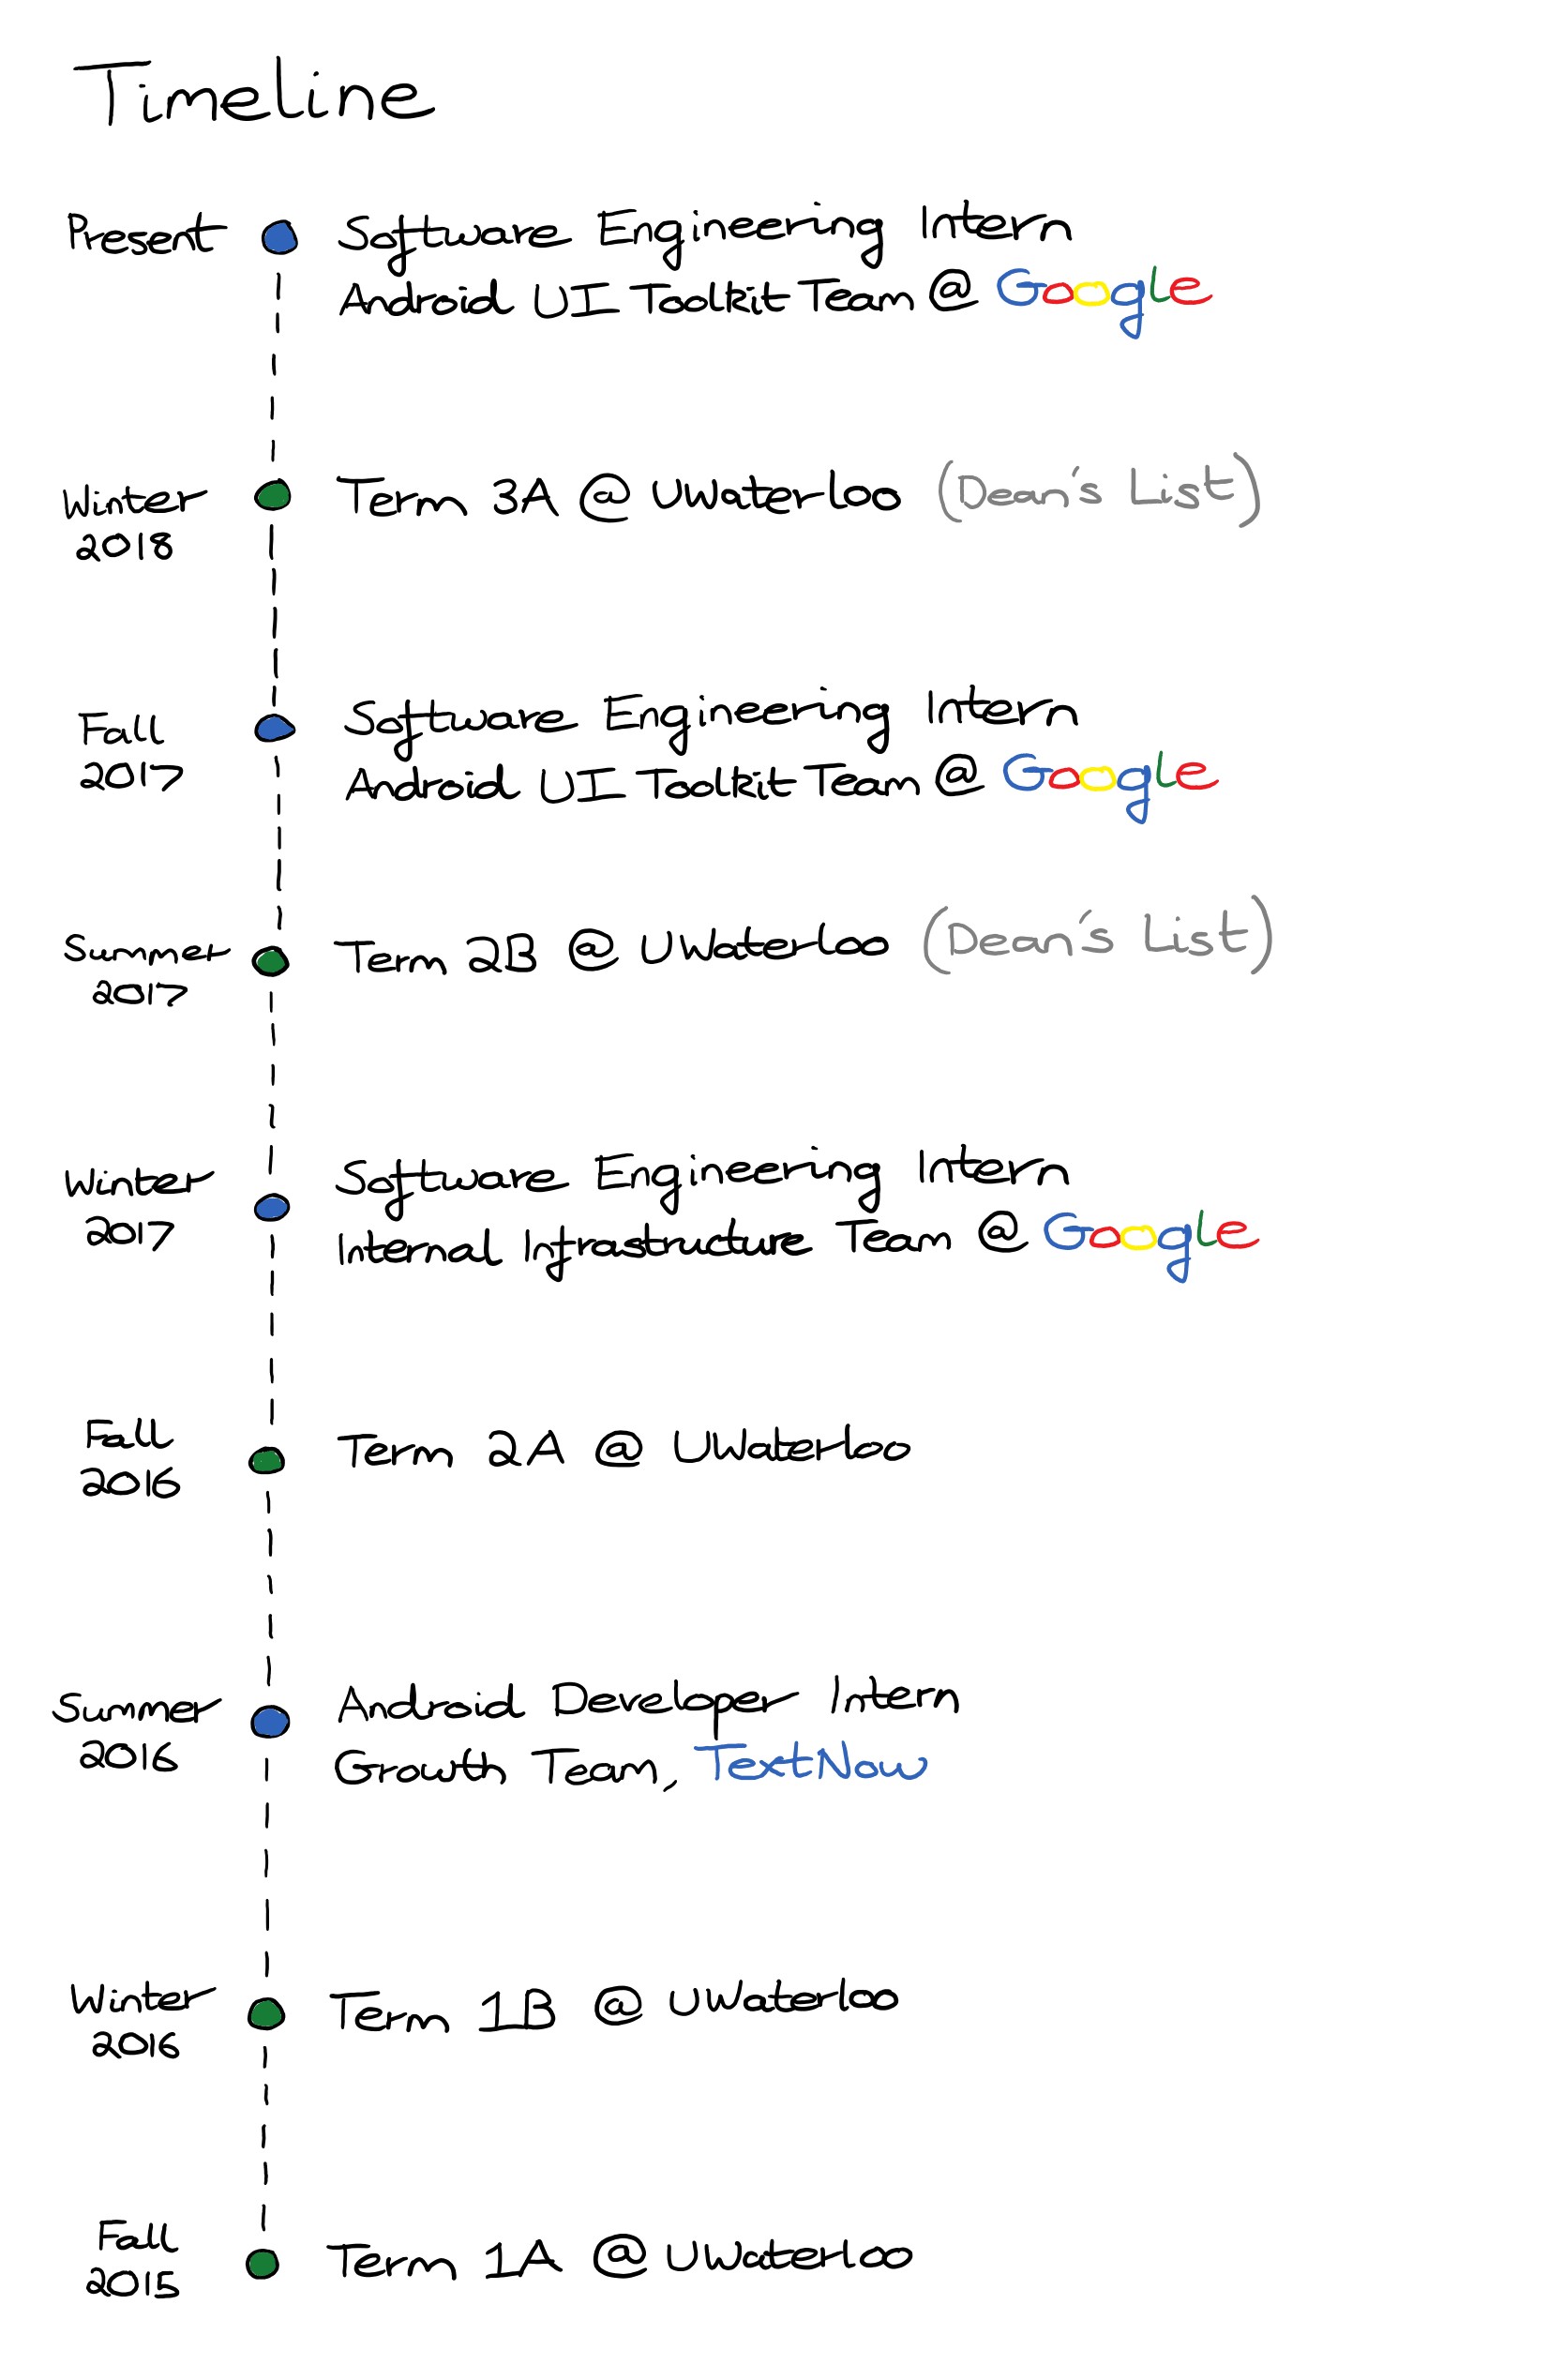 Timeline
Present
Software Engineering Intern
Android UI Toolkit Team @ Google
Winter
2018
Term 3A @ UWaterloo (Dean's List)
Fall
2017
Software Engineering Intern
Android UI Toolkit Team @ Google
Summer
2017
Term 2B @ UWaterloo (Dean's List)
Winter
2017
Software Engineering Intern
Internal Infrastructure Team @ Google
Fall
2016
Term 2A @ UWaterloo
Summer
2016
Android Developer Intern
Growth Team, TextNow
Winter
2016
Term 1B @ UWaterloo
Fall
2015
Term 1A @ UWaterloo